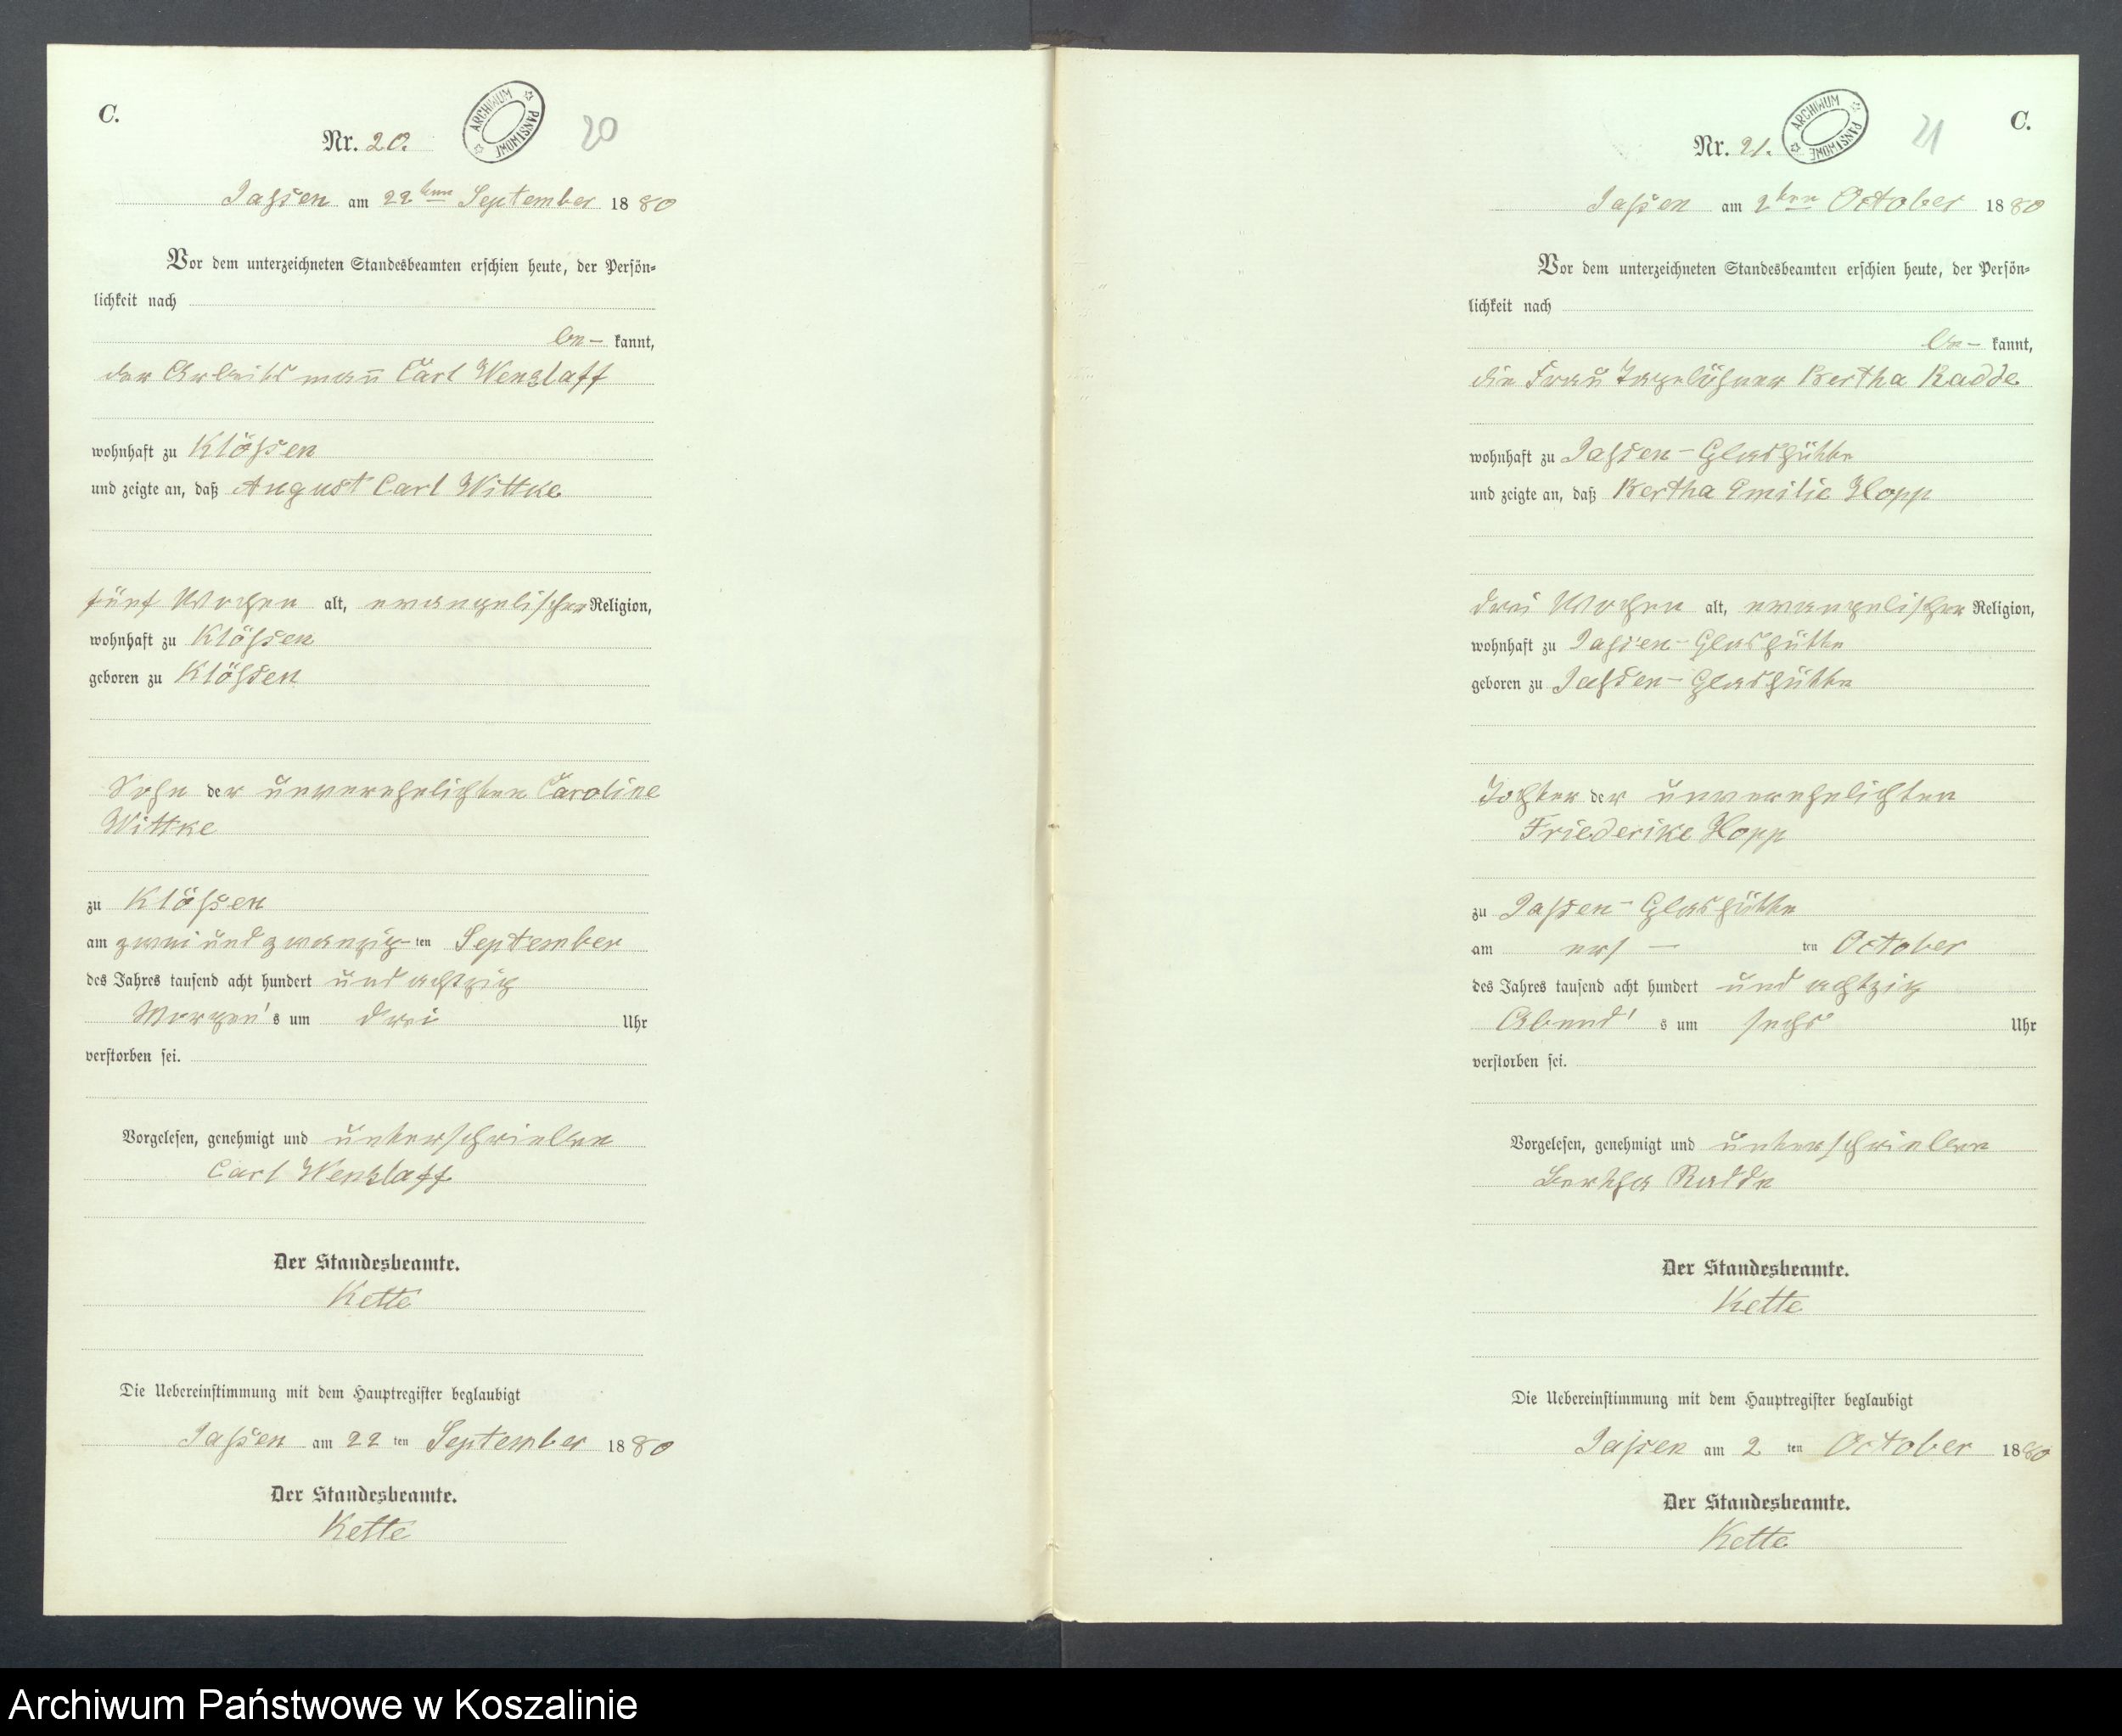 C.
Nr. 20.
ARCHIWUM PAŃSTWOWE
20
Jaßen am 22ten September 1880
Vor dem unterzeichneten Standesbeamten erschien heute, der Persön-
lichkeit nach
be- kannt,
der Arbeitsmañ Carl Wenzlaff
wohnhaft zu Klößen
und zeigte an, daß August Carl Wittke
fünf Wochen alt, evangelischer Religion,
wohnhaft zu Klößen
geboren zu Klößen
Sohn der unverehelichten Caroline
Wittke
zu Klößen
am zwei und zwanzig-ten September
des Jahres tausend acht hundert und achtzig
Morgen's um drei Uhr
verstorben sei.
Vorgelesen, genehmigt und unterschrieben
Carl Wenzlaff
Der Standesbeamte.
Kette
Die Uebereinstimmung mit dem Hauptregister beglaubigt
Jaßen am 22 ten September 1880
Der Standesbeamte.
Kette
C.
Nr. 21.
ARCHIWUM PAŃSTWOWE
21
Jaßen am 2ten October 1880
Vor dem unterzeichneten Standesbeamten erschien heute, der Persön-
lichkeit nach
be- kannt,
die Frau Tagelöhner Bertha Radde
wohnhaft zu Jaßen-Glashütte
und zeigte an, daß Bertha Emilie Hopp
drei Wochen alt, evangelischer Religion,
wohnhaft zu Jaßen-Glashütte
geboren zu Jaßen-Glashütte
Tochter der unverehelichten
Friederike Hopp
zu Jaßen-Glashütte
am ers- ten October
des Jahres tausend acht hundert und achtzig
Abend's um sechs Uhr
verstorben sei.
Vorgelesen, genehmigt und unterschrieben
Bertha Radde
Der Standesbeamte.
Kette
Die Uebereinstimmung mit dem Hauptregister beglaubigt
Jaßen am 2 ten October 1880
Der Standesbeamte.
Kette
Archiwum Państwowe w Koszalinie